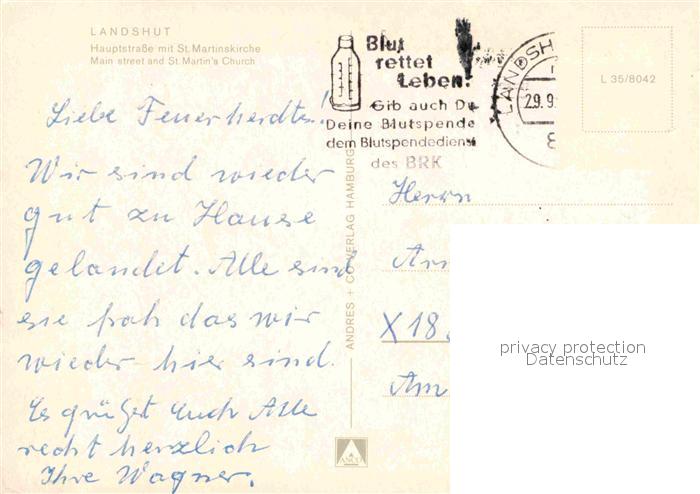 LANDSHUT
Hauptstraße mit St. Martinskirche
Main street and St. Martin's Church
Blut
rettet
Leben!
Gib auch Du
Deine Blutspende
dem Blutspendedienst
des BRK
LANDSH
29.9
8
L 35/8042
Liebe Feuerherdts!
Wir sind wieder
gut zu Hause
gelandet. Alle sind
sie froh das wir
wieder hier sind.
Es grüßet Euch Alle
recht herzlich
Ihre Wagner.
ANDRES + CO VERLAG HAMBURG
ANCO
Herrn
X 18
Am
privacy protection
Datenschutz